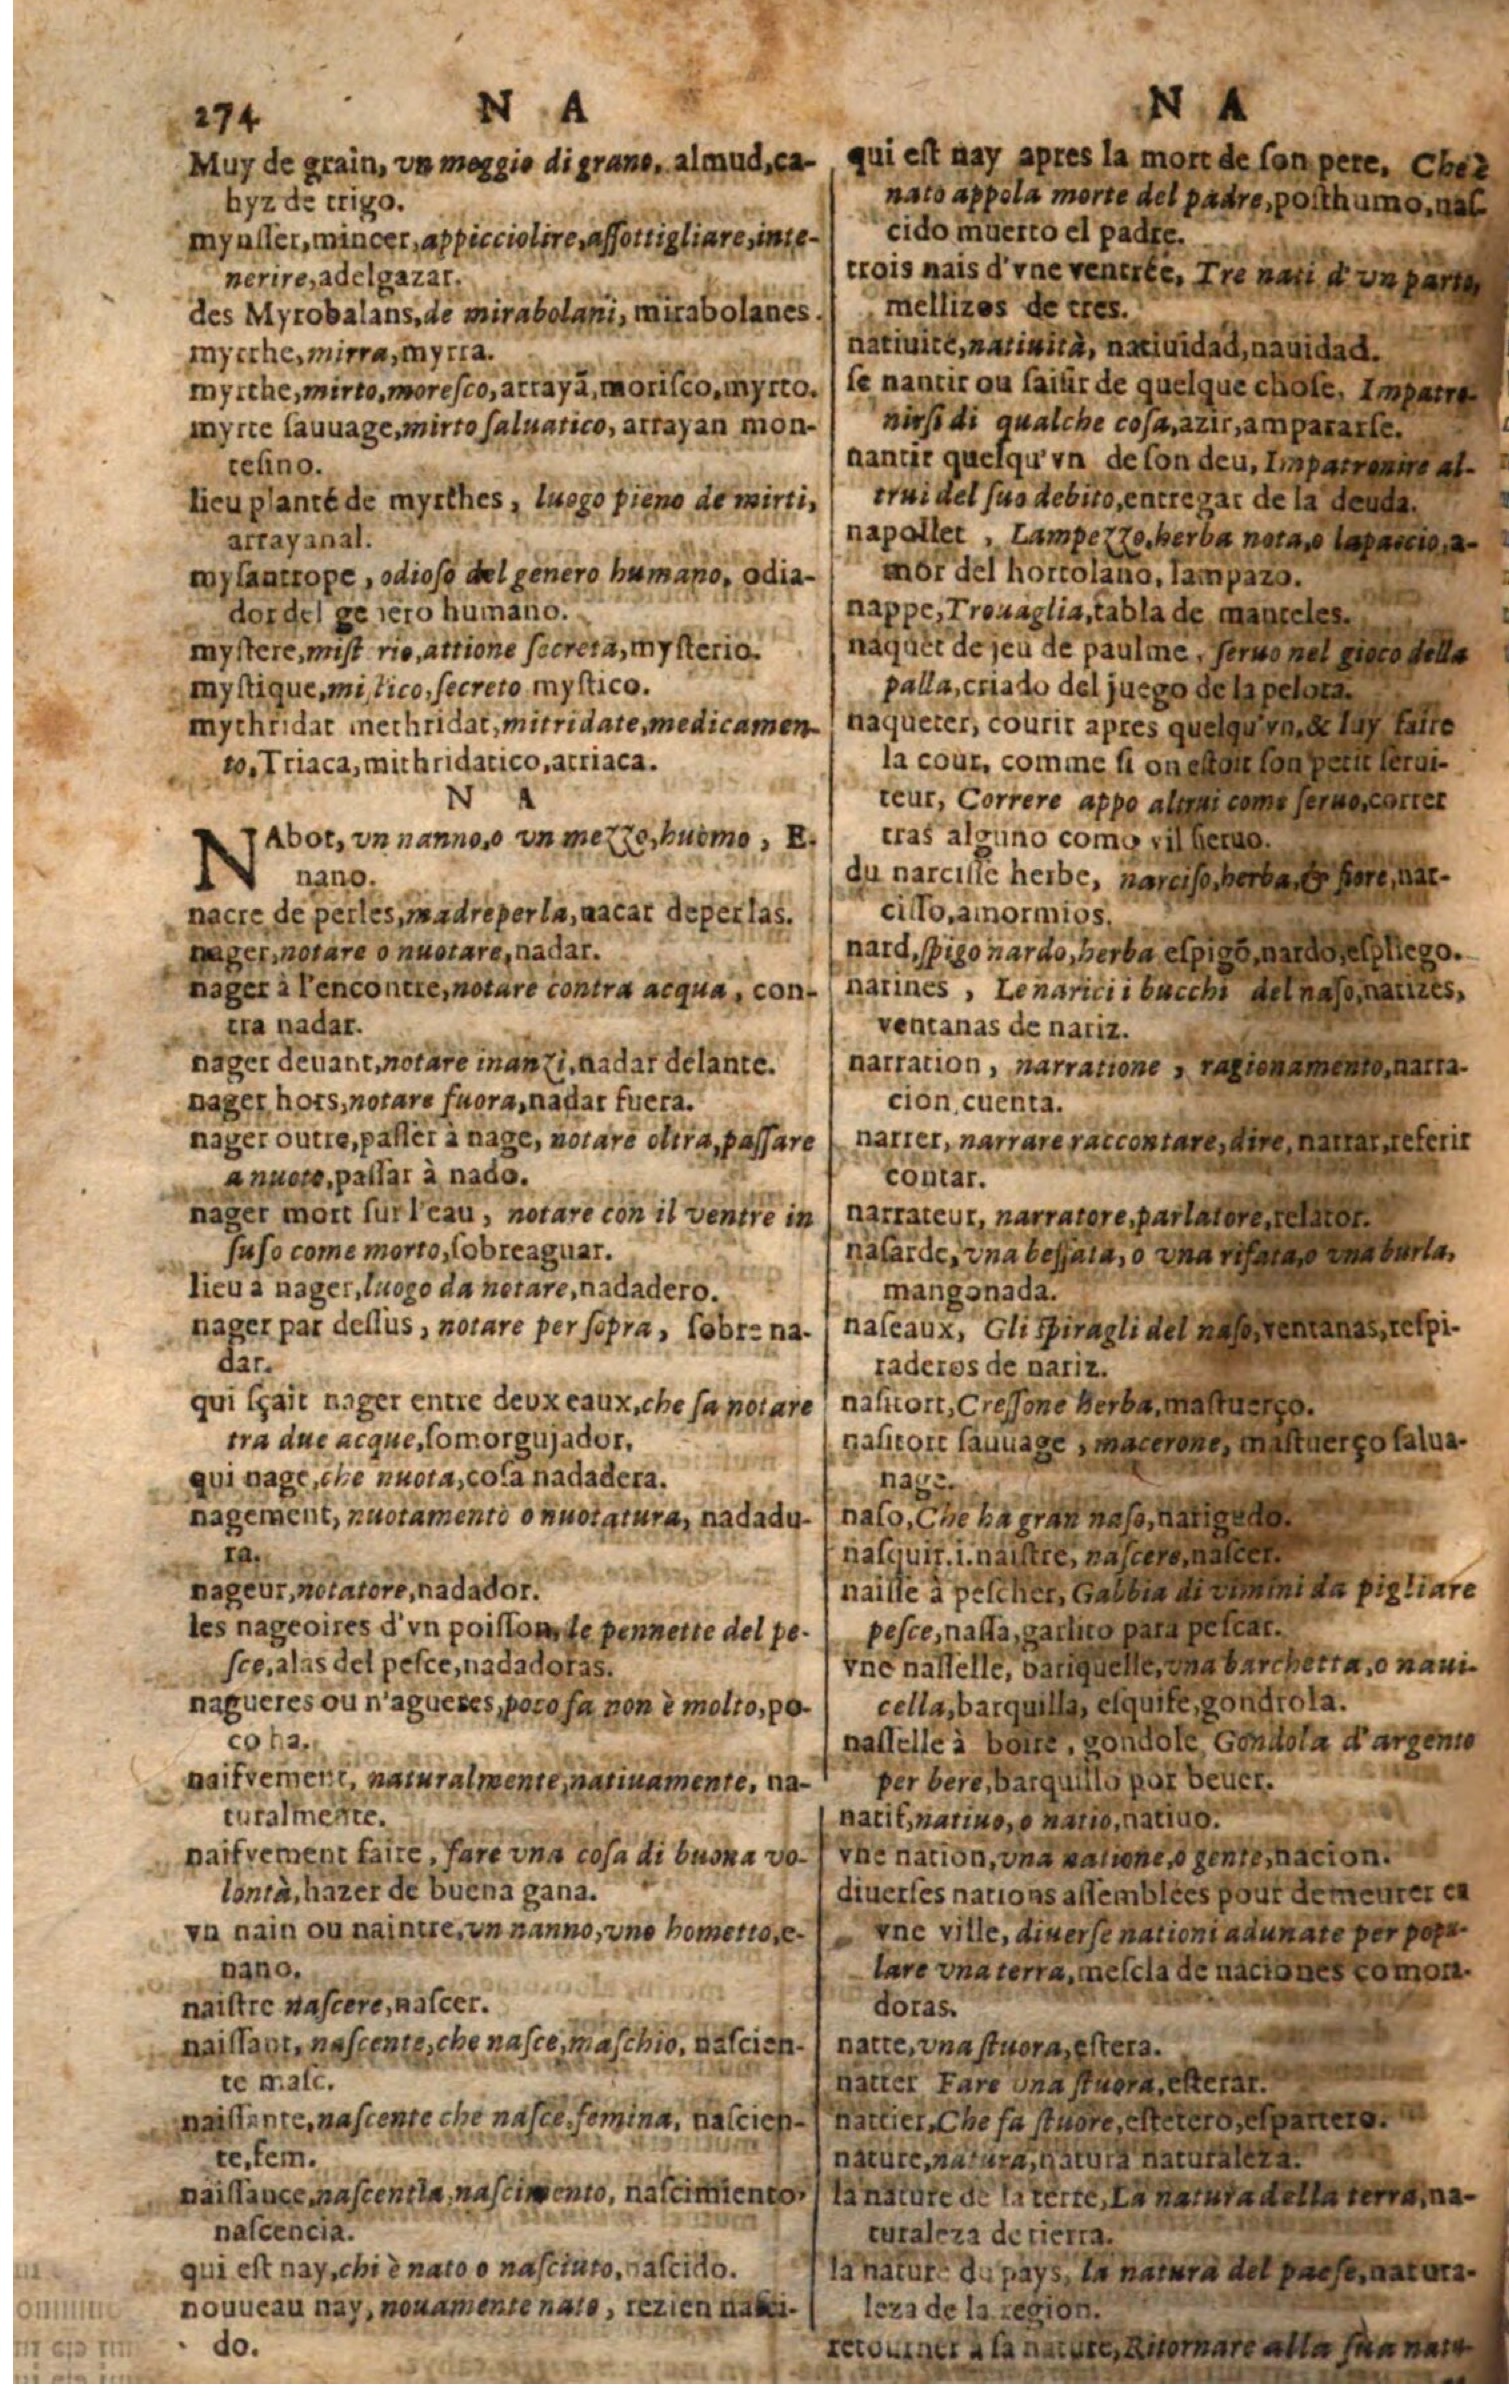 274 N A
Muy de grain, vn moggio di grano, almud, ca-
hyz de trigo.
mynsser, mincer, appicciolire, assottigliare, inte-
nerire, adelgazar.
des Myrobalans, de mirabolani, mirabolanes.
myrrhe, mirra, myrra.
myrthe, mirto, moresco, arrayã, morisco, myrto.
myrte sauuage, mirto saluatico, arrayan mon-
tesino.
lieu planté de myrthes, luogo pieno de mirti,
arrayanal.
mysantrope, odioso del genero humano, odia-
dor del ge nero humano.
mystere, mist rio, attione secreta, mysterio.
mystique, mistico, secreto mystico.
mythridat methridat, mitridate, medicamen-
to, Triaca, mithridatico, atriaca.
N A
NAbot, vn nanno, o vn mezzo, huomo, E-
nano.
nacre de perles, madreperla, nacar deperlas.
nager, notare o nuotare, nadar.
nager à l'encontre, notare contra acqua, con-
tra nadar.
nager deuant, notare inanzi, nadar delante.
nager hors, notare fuora, nadar fuera.
nager outre, passer à nage, notare oltra, passare
a nuoto, passar à nado.
nager mort sur l'eau, notare con il ventre in
suso come morto, sobreaguar.
lieu a nager, luogo da notare, nadadero.
nager par dessus, notare per sopra, sobre na-
dar.
qui sçait nager entre deux eaux, che sa notare
tra due acque, somorgujador,
qui nage, che nuota, cosa nadadera.
nagement, nuotamento o nuotatura, nadadu-
ra.
nageur, notatore, nadador.
les nageoires d'vn poisson, le pennette del pe-
sce, alas del pesce, nadadoras.
nagueres ou n'agueres, poco fa non è molto, po-
co ha.
naifvement, naturalmente, natiuamente, na-
turalmente.
naifvement faire, fare vna cosa di buona vo-
lontà, hazer de buena gana.
vn nain ou naintre, vn nanno, vno hometto, e-
nano.
naistre nascere, nascer.
naissant, nascente, che nasce, maschio, nascien-
te masc.
naissante, nascente che nasce, femina, nascien-
te, fem.
naissance, nascentia, nascimento, nascimiento,
nascencia.
qui est nay, chi è nato o nasciuto, nascido.
nouueau nay, nouamente nato, rezien nasci-
do.
N A
qui est nay apres la mort de son pere, Che è
nato appo la morte del padre, posthumo, nas-
cido muerto el padre.
trois nais d'vne ventrée, Tre nati d'vn parto,
mellizos de tres.
natiuité, natiuità, natiuidad, nauidad.
se nantir ou saisir de quelque chose, Impatro-
nirsi di qualche cosa, azir, ampararse.
nantir quelqu'vn de son deu, Impatronire al-
trui del suo debito, entregar de la deuda.
napollet, Lampezzo, herba nota, o lapaccio, a-
mor del hortolano, lampazo.
nappe, Trouaglia, tabla de manteles.
naquet de jeu de paulme, seruo nel gioco della
palla, criado del juego de la pelota.
naqueter, courir apres quelqu'vn, & luy faire
la cour, comme si on estoit son petit serui-
teur, Correre appo altrui come seruo, correr
tras alguno como vil sieruo.
du narcisse herbe, narciso, herba, & fiore, nar-
cisso, amormios.
nard, spigo nardo, herba espigõ, nardo, espliego.
narines, Le narici i bucchi del naso, narizes,
ventanas de nariz.
narration, narratione, ragionamento, narra-
cion, cuenta.
narrer, narrare raccontare, dire, narrar, referir
contar.
narrateur, narratore, parlatore, relator.
nasarde, vna beffata, o vna risata, o vna burla,
mangonada.
naseaux, Gli spiragli del naso, ventanas, respi-
raderos de nariz.
nasitort, Cressone herba, mastuerço.
nasitort sauuage, macerone, mastuerço salua-
nage.
naso, Che ha gran naso, narigudo.
nasquir. i. naistre, nascere, nascer.
naisse à pescher, Gabbia di vimini da pigliare
pesce, nassa, garlito para pescar.
vne nasselle, bariquelle, vna barchetta, o naui-
cella, barquilla, esquife, gondrola.
nasselle à boire, gondole Gondola d'argento
per bere, barquillo por beuer.
natif, natiuo, o natio, natiuo.
vne nation, vna natione, o gente, nacion.
diuerses nations assemblées pour demeurer en
vne ville, diuerse nationi adunate per popu-
lare vna terra, mescla de naciones comon-
doras.
natte, vna stuora, estera.
natter Fare vna stuora, esterar.
nattier, Che fa stuore, esterero, espartero.
nature, natura, natura naturaleza.
la nature de la terre, La natura della terra, na-
turaleza de tierra.
la nature du pays, la natura del paese, natura-
leza de la region.
retourner à sa nature, Ritornare alla sua natu-